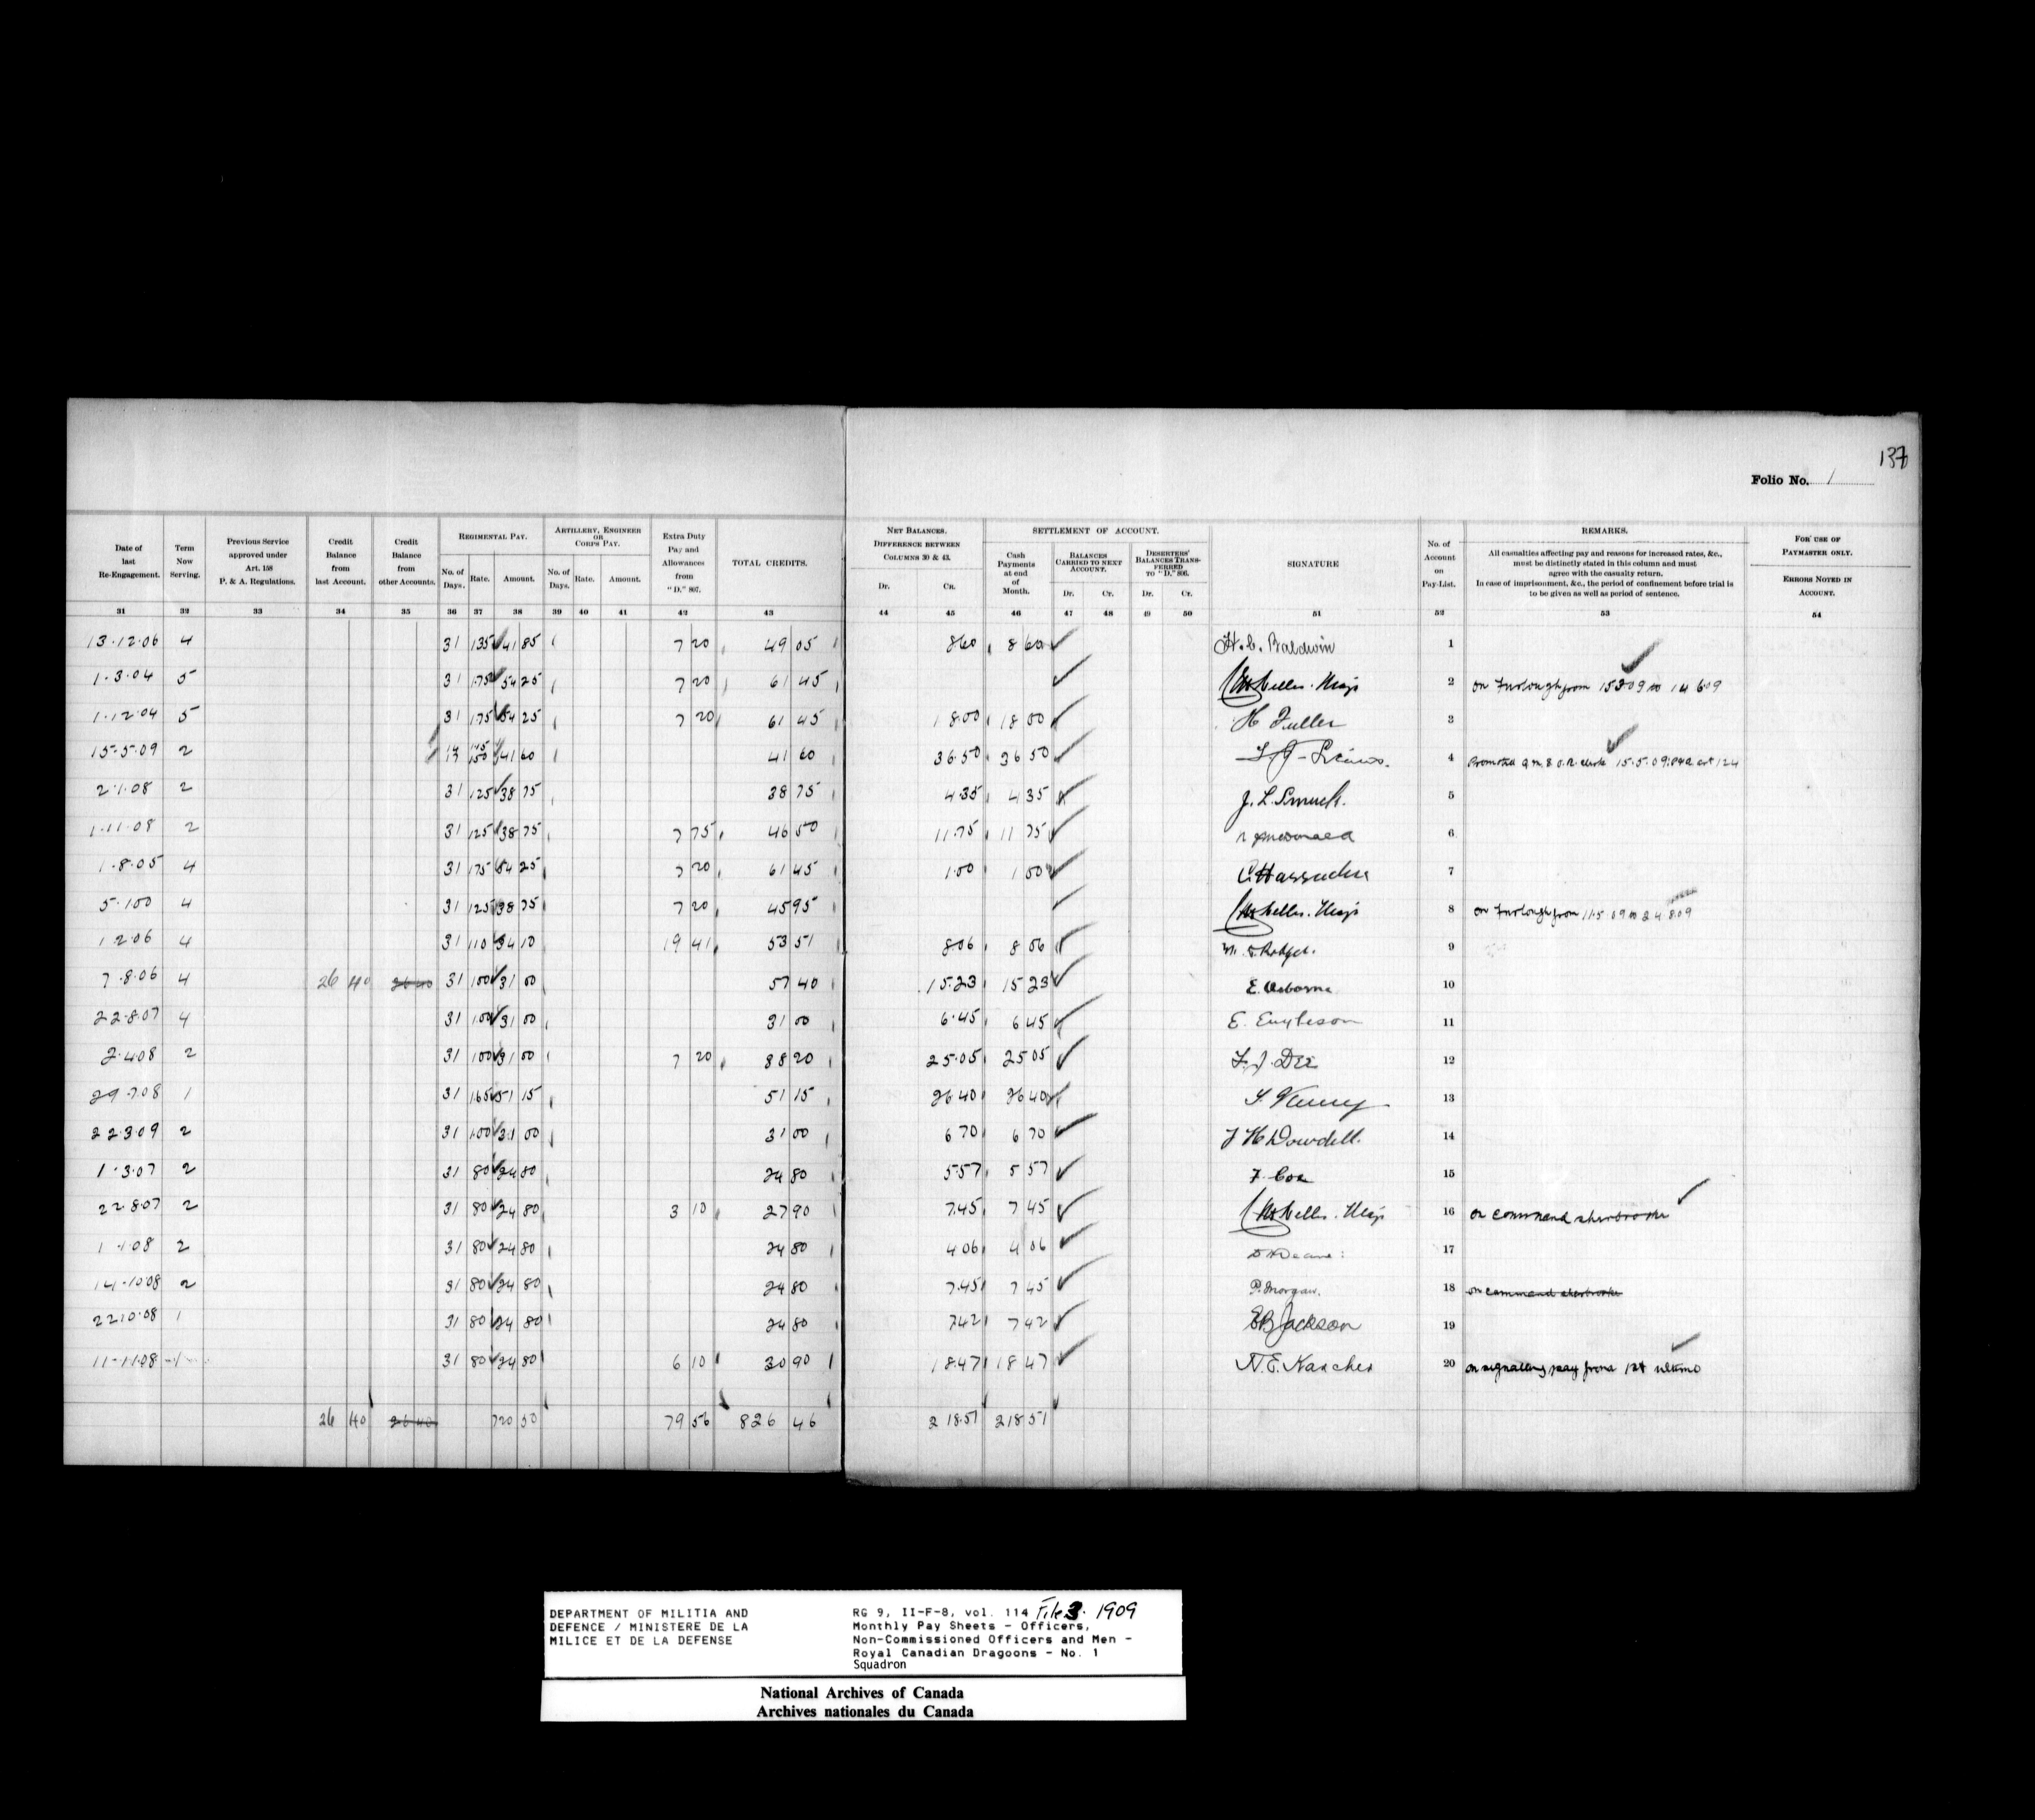 137
Folio No. 1
Date of last Re-Engagement. 31
Term Now Serving. 32
Previous Service approved under Art. 158 P. & A. Regulations. 33
Credit Balance from last Account. 34
Credit Balance from other Accounts. 35
REGIMENTAL PAY.
No. of Days. 36 Rate. 37 Amount. 38
ARTILLERY, ENGINEER OR CORPS PAY.
No. of Days. 39 Rate. 40 Amount. 41
Extra Duty Pay and Allowances from "D." 807. 42
TOTAL CREDITS. 43
NET BALANCES. DIFFERENCE BETWEEN COLUMNS 30 & 43.
Dr. 44 Cr. 45
SETTLEMENT OF ACCOUNT.
Cash Payments at end of Month. 46
BALANCES CARRIED TO NEXT ACCOUNT. Dr. 47 Cr. 48
DESERTERS' BALANCES TRANSFERRED TO "D." 806. Dr. 49 Cr. 50
SIGNATURE 51
No. of Account on Pay-List. 52
REMARKS.
All casualties affecting pay and reasons for increased rates, &c., must be distinctly stated in this column and must agree with the casualty return.
In case of imprisonment, &c., the period of confinement before trial is to be given as well as period of sentence. 53
FOR USE OF PAYMASTER ONLY.
ERRORS NOTED IN ACCOUNT. 54
13.12.06 4 31 135 41 85 7 20 49 05 8 60 8 60 H. C. Baldwin 1
1.3.04 5 31 175 54 25 7 20 61 45 2 on furlough from 15 3 09 to 14 6 09
1.12.04 5 31 175 54 25 7 20 61 45 18.00 18 00 H Fuller 3
15-5.09 2 14 145 17 150 41 60 41 60 36.50 36 50 4 Promoted Q M S O.R. clerk 15.5.09 P&A art 124
2.1.08 2 31 125 38 75 38 75 4.35 4 35 J. L. Smuck. 5
1.11.08 2 31 125 38 75 7 75 46 50 11.75 11 75 McDonald 6
1.8.05 4 31 175 54 25 7 20 61 45 1.00 1 00 7
5.1.00 4 31 125 38 75 7 20 45 95 8 on furlough from 11.5.09 to 24 8 09
1 2.06 4 31 110 34 10 19 41 53 51 8 06 8 06 9
7.8.06 4 26 40 26 40 31 100 31 00 57 40 15.23 15 23 E. Osborne 10
22.8.07 4 31 100 31 00 31 00 6.45 6 45 11
2.4.08 2 31 100 31 00 7 20 38 20 25.05 25 05 F. J. Dee 12
29.7.08 1 31 165 51 15 51 15 26 40 26 40 13
22.3.09 2 31 100 31 00 31 00 6 70 6 70 J H Dowdell. 14
1.3.07 2 31 80 24 80 24 80 5.57 5 57 F. Coe 15
22.8.07 2 31 80 24 80 3 10 27 90 7.45 7 45 16 on command sherbrooke
1.1.08 2 31 80 24 80 24 80 4 06 4 06 Deane 17
14-10 08 2 31 80 24 80 24 80 7.45 7 45 P. Morgan. 18 on command sherbrooke
22.10.08 1 31 80 24 80 24 80 7.42 7 42 E B Jackson 19
11-11.08 31 80 24 80 6 10 30 90 18.47 18 47 N. E. Kascher 20 on signalling pay from 1st ultimo
26 40 26 40 720 50 79 56 826 46 218.51 218 51
DEPARTMENT OF MILITIA AND
DEFENCE / MINISTERE DE LA
MILICE ET DE LA DEFENSE
RG 9, II-F-8, vol. 114 File 3. 1909
Monthly Pay Sheets - Officers,
Non-Commissioned Officers and Men -
Royal Canadian Dragoons - No. 1
Squadron
National Archives of Canada
Archives nationales du Canada